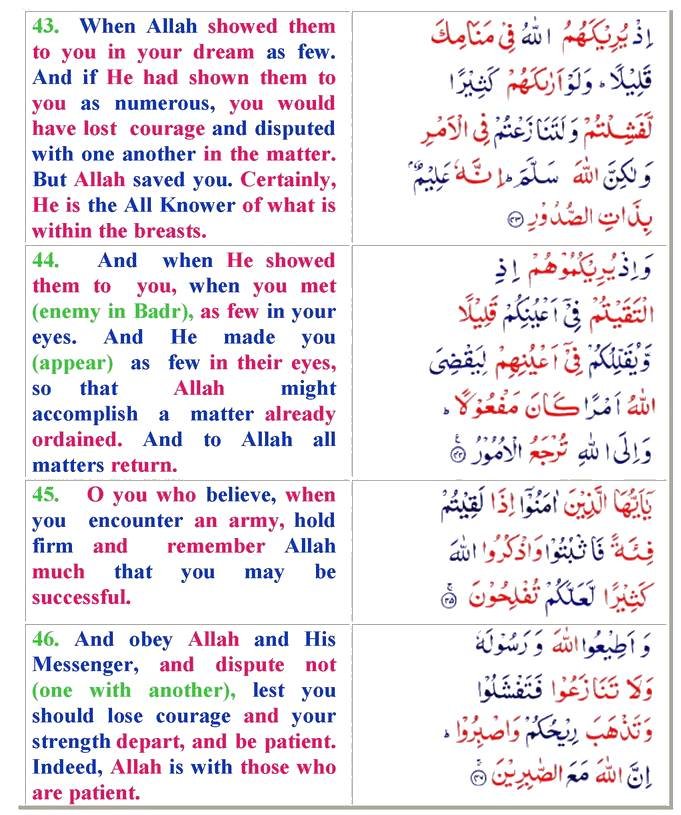 43. When Allah showed them
to you in your dream as few.
And if He had shown them to
you as numerous, you would
have lost courage and disputed
with one another in the matter.
But Allah saved you. Certainly,
He is the All Knower of what is
within the breasts.
اِذْ يُرِيْكَهُمُ اللّٰهُ فِيْ مَنَامِكَ
قَلِيْلًا ؕ وَلَوْ اَرٰىكَهُمْ كَثِيْرًا
لَّفَشِلْتُمْ وَلَتَنَازَعْتُمْ فِي الْاَمْرِ
وَلٰكِنَّ اللّٰهَ سَلَّمَ ؕ اِنَّهٗ عَلِيْمٌۢ
بِذَاتِ الصُّدُوْرِ ۴۳
44. And when He showed
them to you, when you met
(enemy in Badr), as few in your
eyes. And He made you
(appear) as few in their eyes,
so that Allah might
accomplish a matter already
ordained. And to Allah all
matters return.
وَاِذْ يُرِيْكُمُوْهُمْ اِذِ
الْتَقَيْتُمْ فِيْۤ اَعْيُنِكُمْ قَلِيْلًا
وَّيُقَلِّلُكُمْ فِيْۤ اَعْيُنِهِمْ لِيَقْضِيَ
اللّٰهُ اَمْرًا كَانَ مَفْعُوْلًا ؕ
وَاِلَى اللّٰهِ تُرْجَعُ الْاُمُوْرُ ۴۴
45. O you who believe, when
you encounter an army, hold
firm and remember Allah
much that you may be
successful.
يٰۤاَيُّهَا الَّذِيْنَ اٰمَنُوْۤا اِذَا لَقِيْتُمْ
فِئَةً فَاثْبُتُوْا وَاذْكُرُوا اللّٰهَ
كَثِيْرًا لَّعَلَّكُمْ تُفْلِحُوْنَ ۴۵
46. And obey Allah and His
Messenger, and dispute not
(one with another), lest you
should lose courage and your
strength depart, and be patient.
Indeed, Allah is with those who
are patient.
وَاَطِيْعُوا اللّٰهَ وَرَسُوْلَهٗ
وَلَا تَنَازَعُوْا فَتَفْشَلُوْا
وَتَذْهَبَ رِيْحُكُمْ وَاصْبِرُوْا ؕ
اِنَّ اللّٰهَ مَعَ الصّٰبِرِيْنَ ۴۶